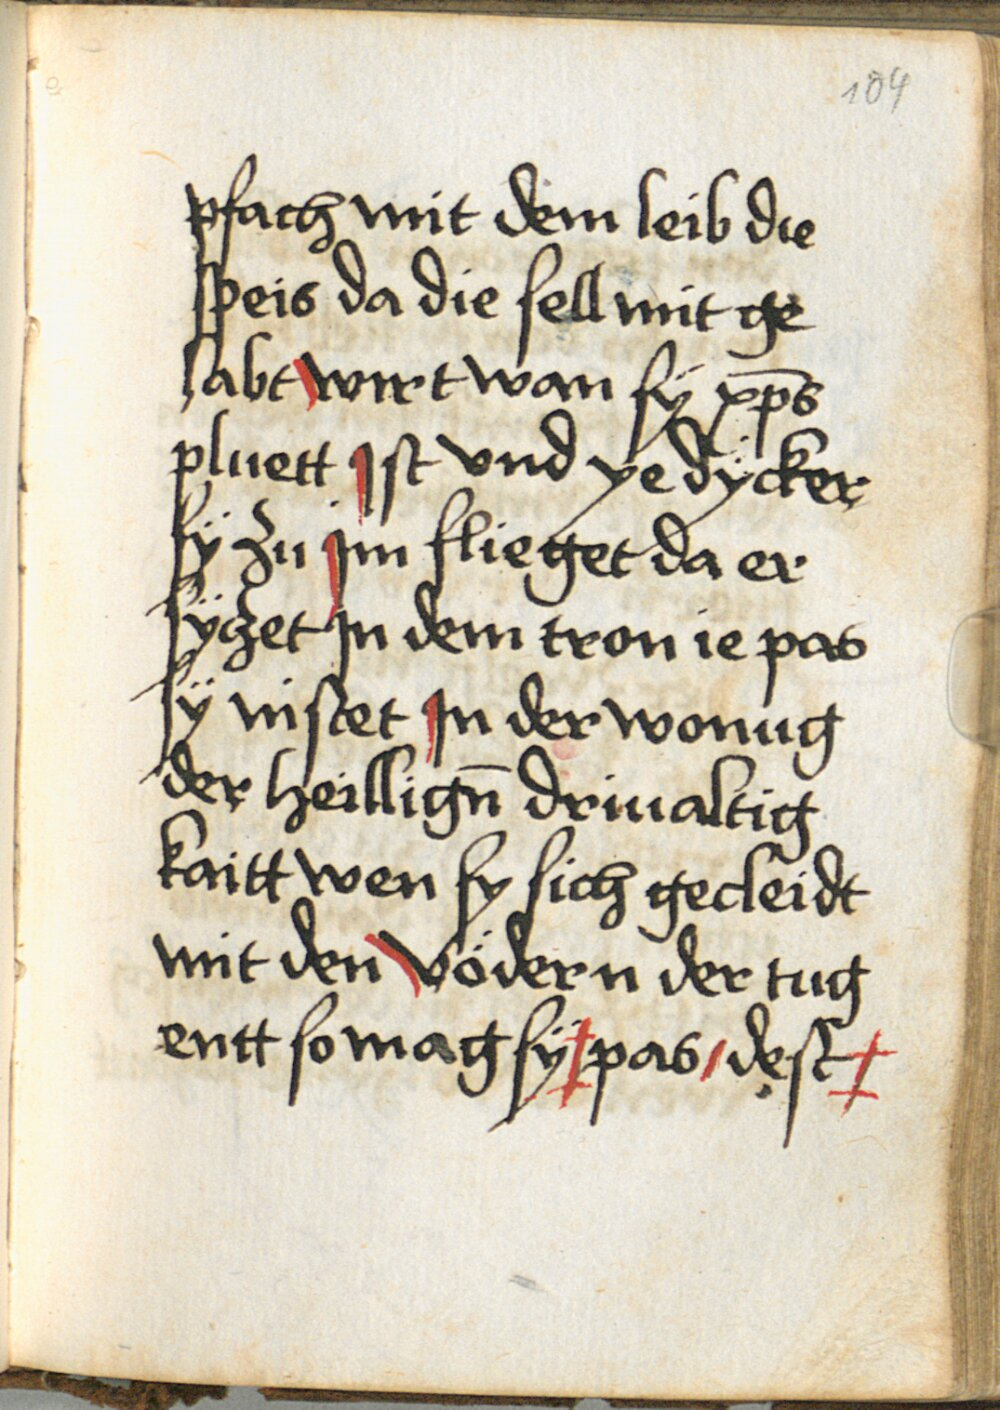 104
pfach mit dem leib die
speis da die sell mit ge
labt wirt wan sÿ xp̄s
pluett Jst vnd ye dÿcker
sÿ zu jm flieget da er
sÿczet Jn dem tron ie pas
sÿ nistet Jn der wonug
der heillign̄ driualtig
kaitt wen sy sich gecleidt
mit den vödern der tug
entt so mag sÿ pas / dest